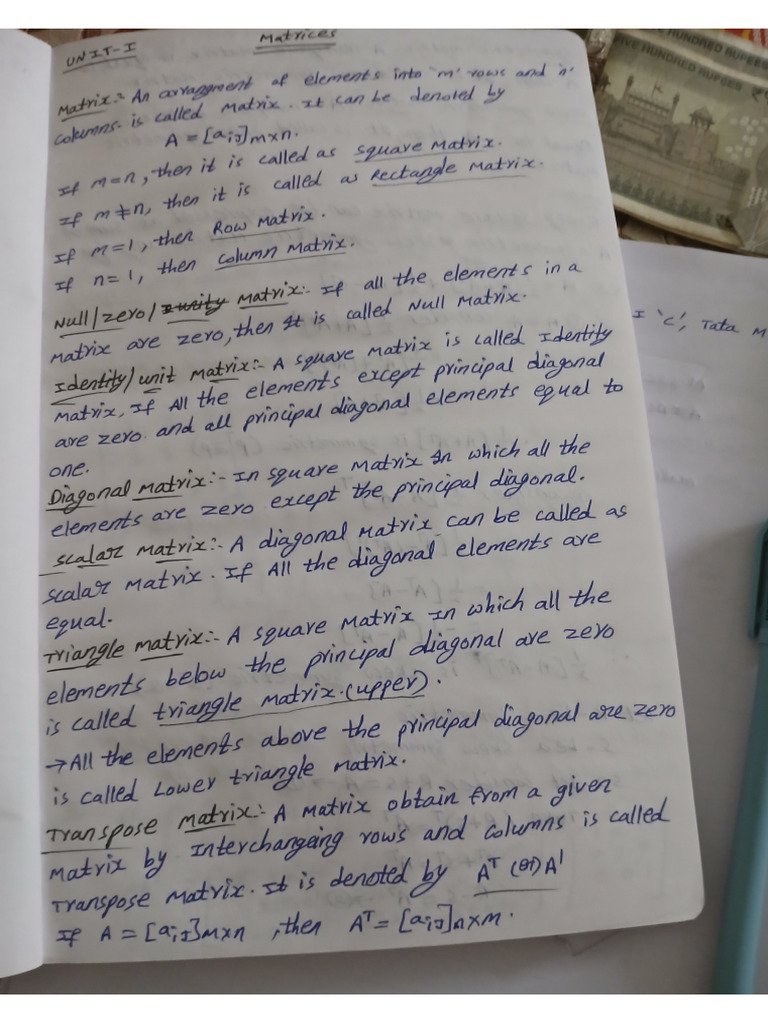 UNIT-I
Matrices
Matrix:- An arrangment of elements into 'm' rows and 'n'
columns is called Matrix. It can be denoted by
A = [aij]m×n.
If m=n, then it is called as square Matrix.
If m≠n, then it is called as Rectangle Matrix.
If m=1, then Row Matrix.
If n=1, then Column Matrix.
Null/zero/Iunity Matrix:- If all the elements in a
Matrix are zero, then It is called Null Matrix.
Identity/unit Matrix:- A square Matrix is called Identity
Matrix, If All the elements except principal diagonal
are zero. and all principal diagonal elements equal to
one.
Diagonal Matrix:- In square Matrix In which all the
elements are zero except the principal diagonal.
scalar Matrix:- A diagonal Matrix can be called as
scalar Matrix. If All the diagonal elements are
equal.
Triangle matrix:- A square Matrix In which all the
elements below the principal diagonal are zero
is called triangle matrix.(upper).
→All the elements above the principal diagonal are zero
is called Lower triangle matrix.
Transpose Matrix:- A Matrix obtain from a given
Matrix by Interchangeing rows and columns is called
Transpose Matrix. It is denoted by Aᵀ (or) A'
If A = [aij]m×n, then Aᵀ = [aij]n×m.
FIVE HUNDRED RUPEES
HUNDRED RUPEES
I 'C', Tata M